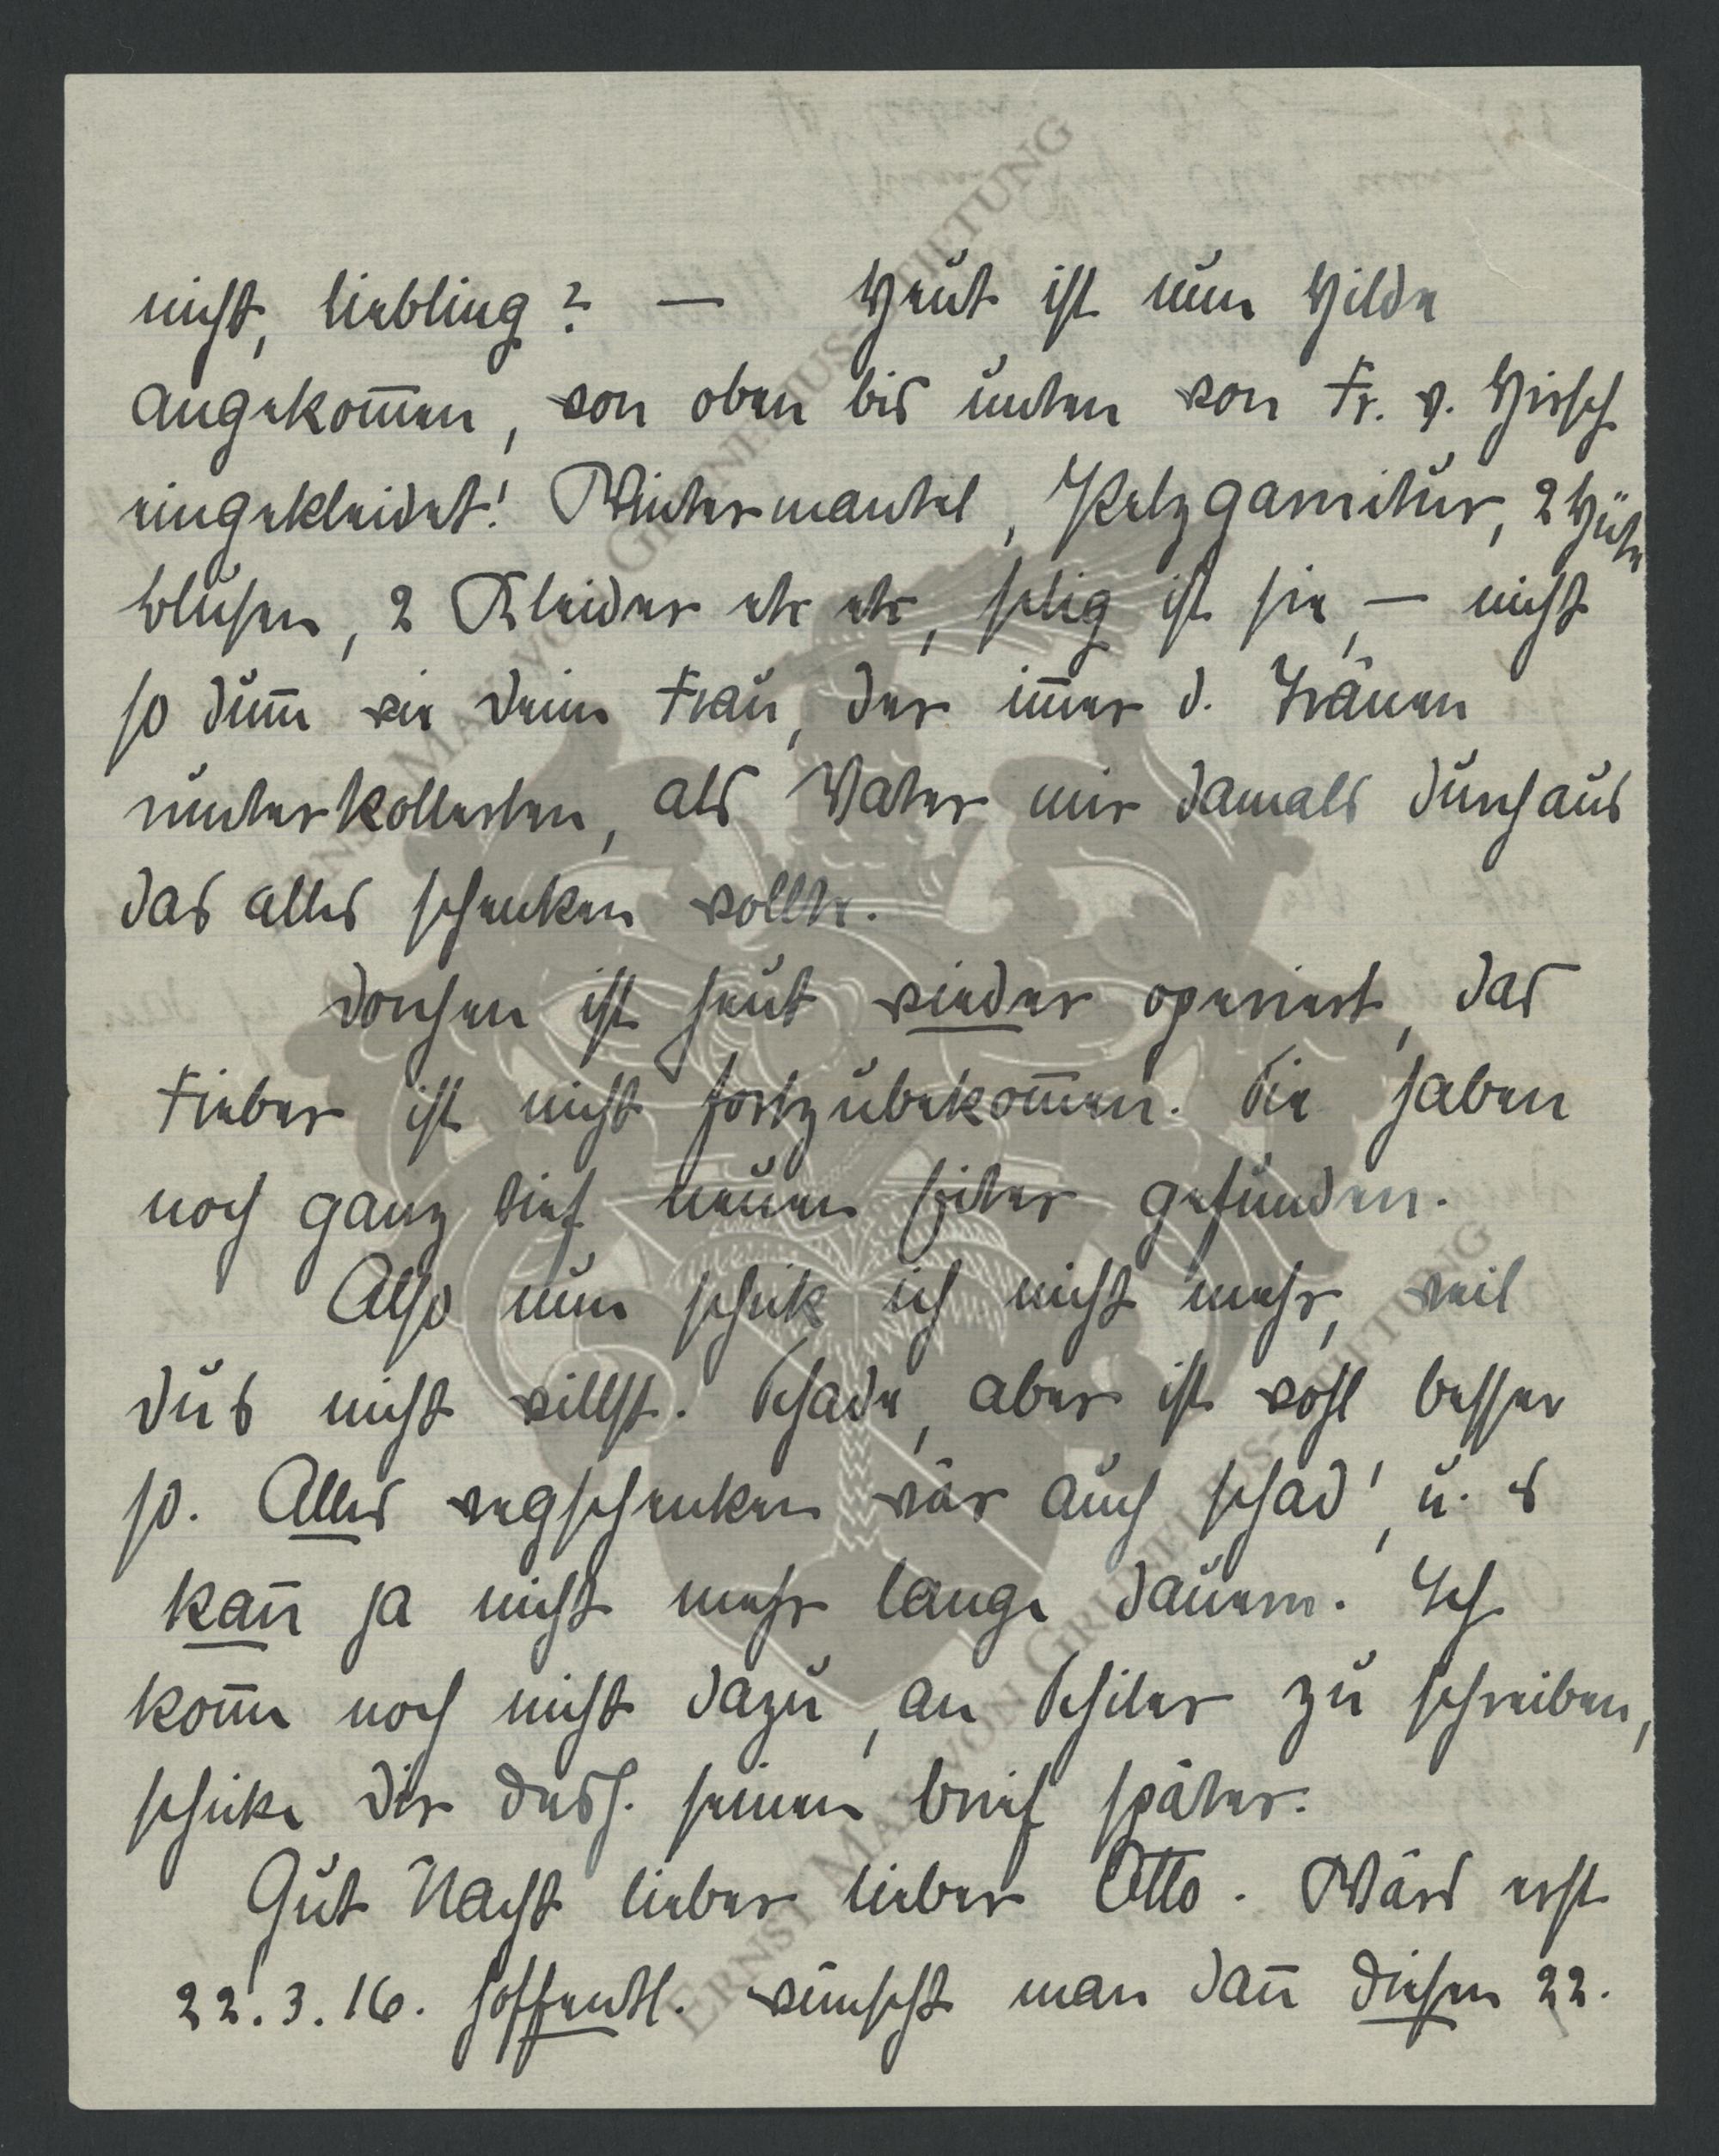 nicht, Liebling? — Heut ist nun Hilde
angekom̅en, von oben bis unten von Fr. v. Hirsch
eingekleidet! Wintermantel, Pelzgarnitur, 2 Hüte
Blusen, 2 Kleider etc etc, selig ist sie, — nicht
so dum̅ wie Deine Frau, der im̅er d. Tränen
runterkollerten, als Vater mir damals durchaus
das alles schenken wollte.
Dorchen ist heut wieder operiert, das
Fieber ist nicht fortzubekom̅en. Sie haben
noch ganz tief neuen Eiter gefunden.
Also nun schick ich nicht mehr, weil
Du's nicht willst. Schade, aber ist wohl besser
so. Alles wegschenken wär auch schad', u. es
kan̅ ja nicht mehr lange dauern. Ich
kom̅e noch nicht dazu, an Schiler zu schreiben,
schicke Dir desh. seinen Brief später.
Gut Nacht lieber lieber Otto. Wärs erst
22.3.16. hoffentl. wünscht man dan̅ diesen 22.
ERNST MAX VON GRUNELIUS-STIFTUNG
ERNST MAX VON GRUNELIUS-STIFTUNG